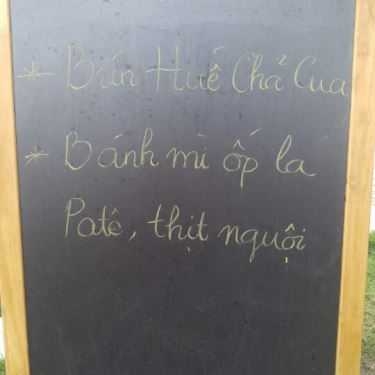 * Bún Huế Chả Cua
* Bánh mì ốp la
Patê, thịt nguội